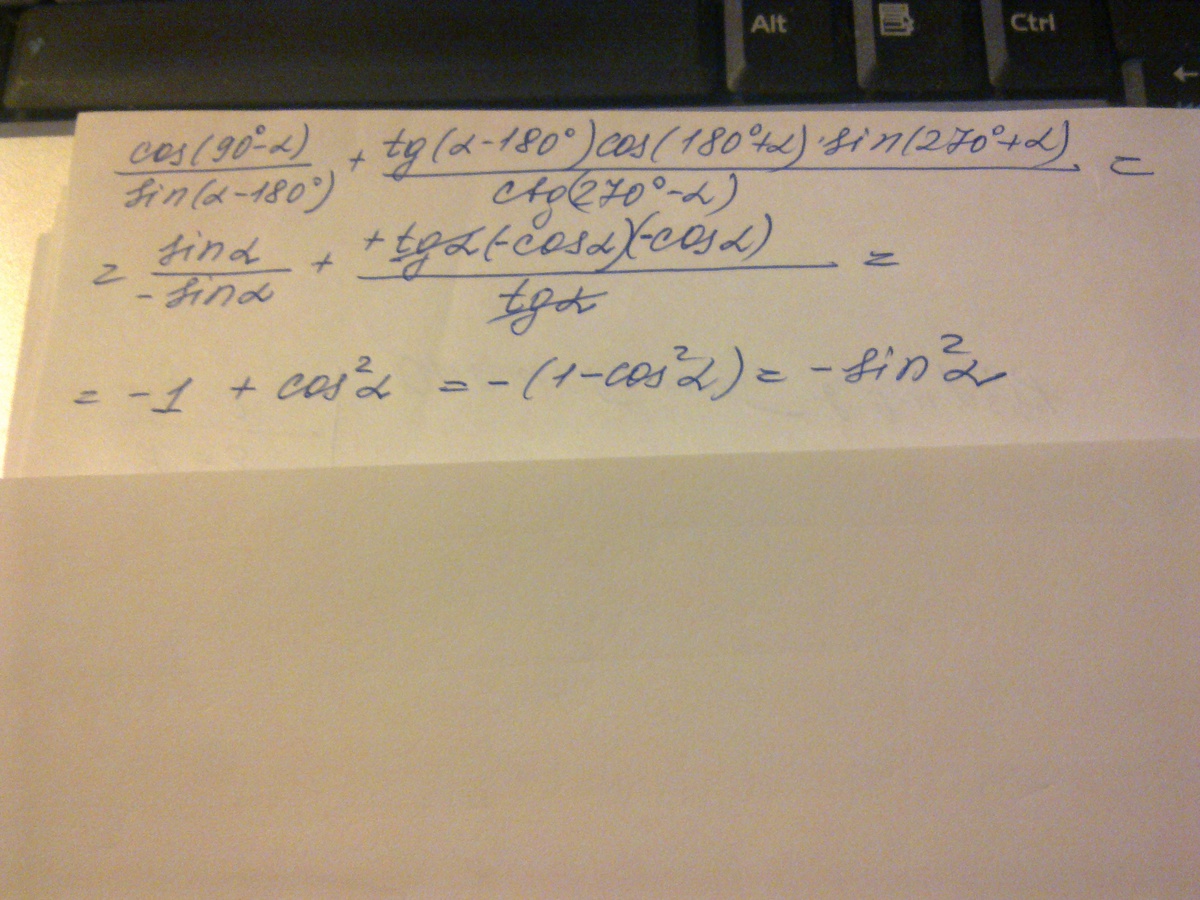 Alt Ctrl ←
cos(90°-α)/sin(α-180°) + tg(α-180°)cos(180°+α)·sin(270°+α)/ctg(270°-α) =
= sinα/-sinα + +tgα(-cosα)(-cosα)/tgα =
= -1 + cos²α = -(1-cos²α) = -sin²α